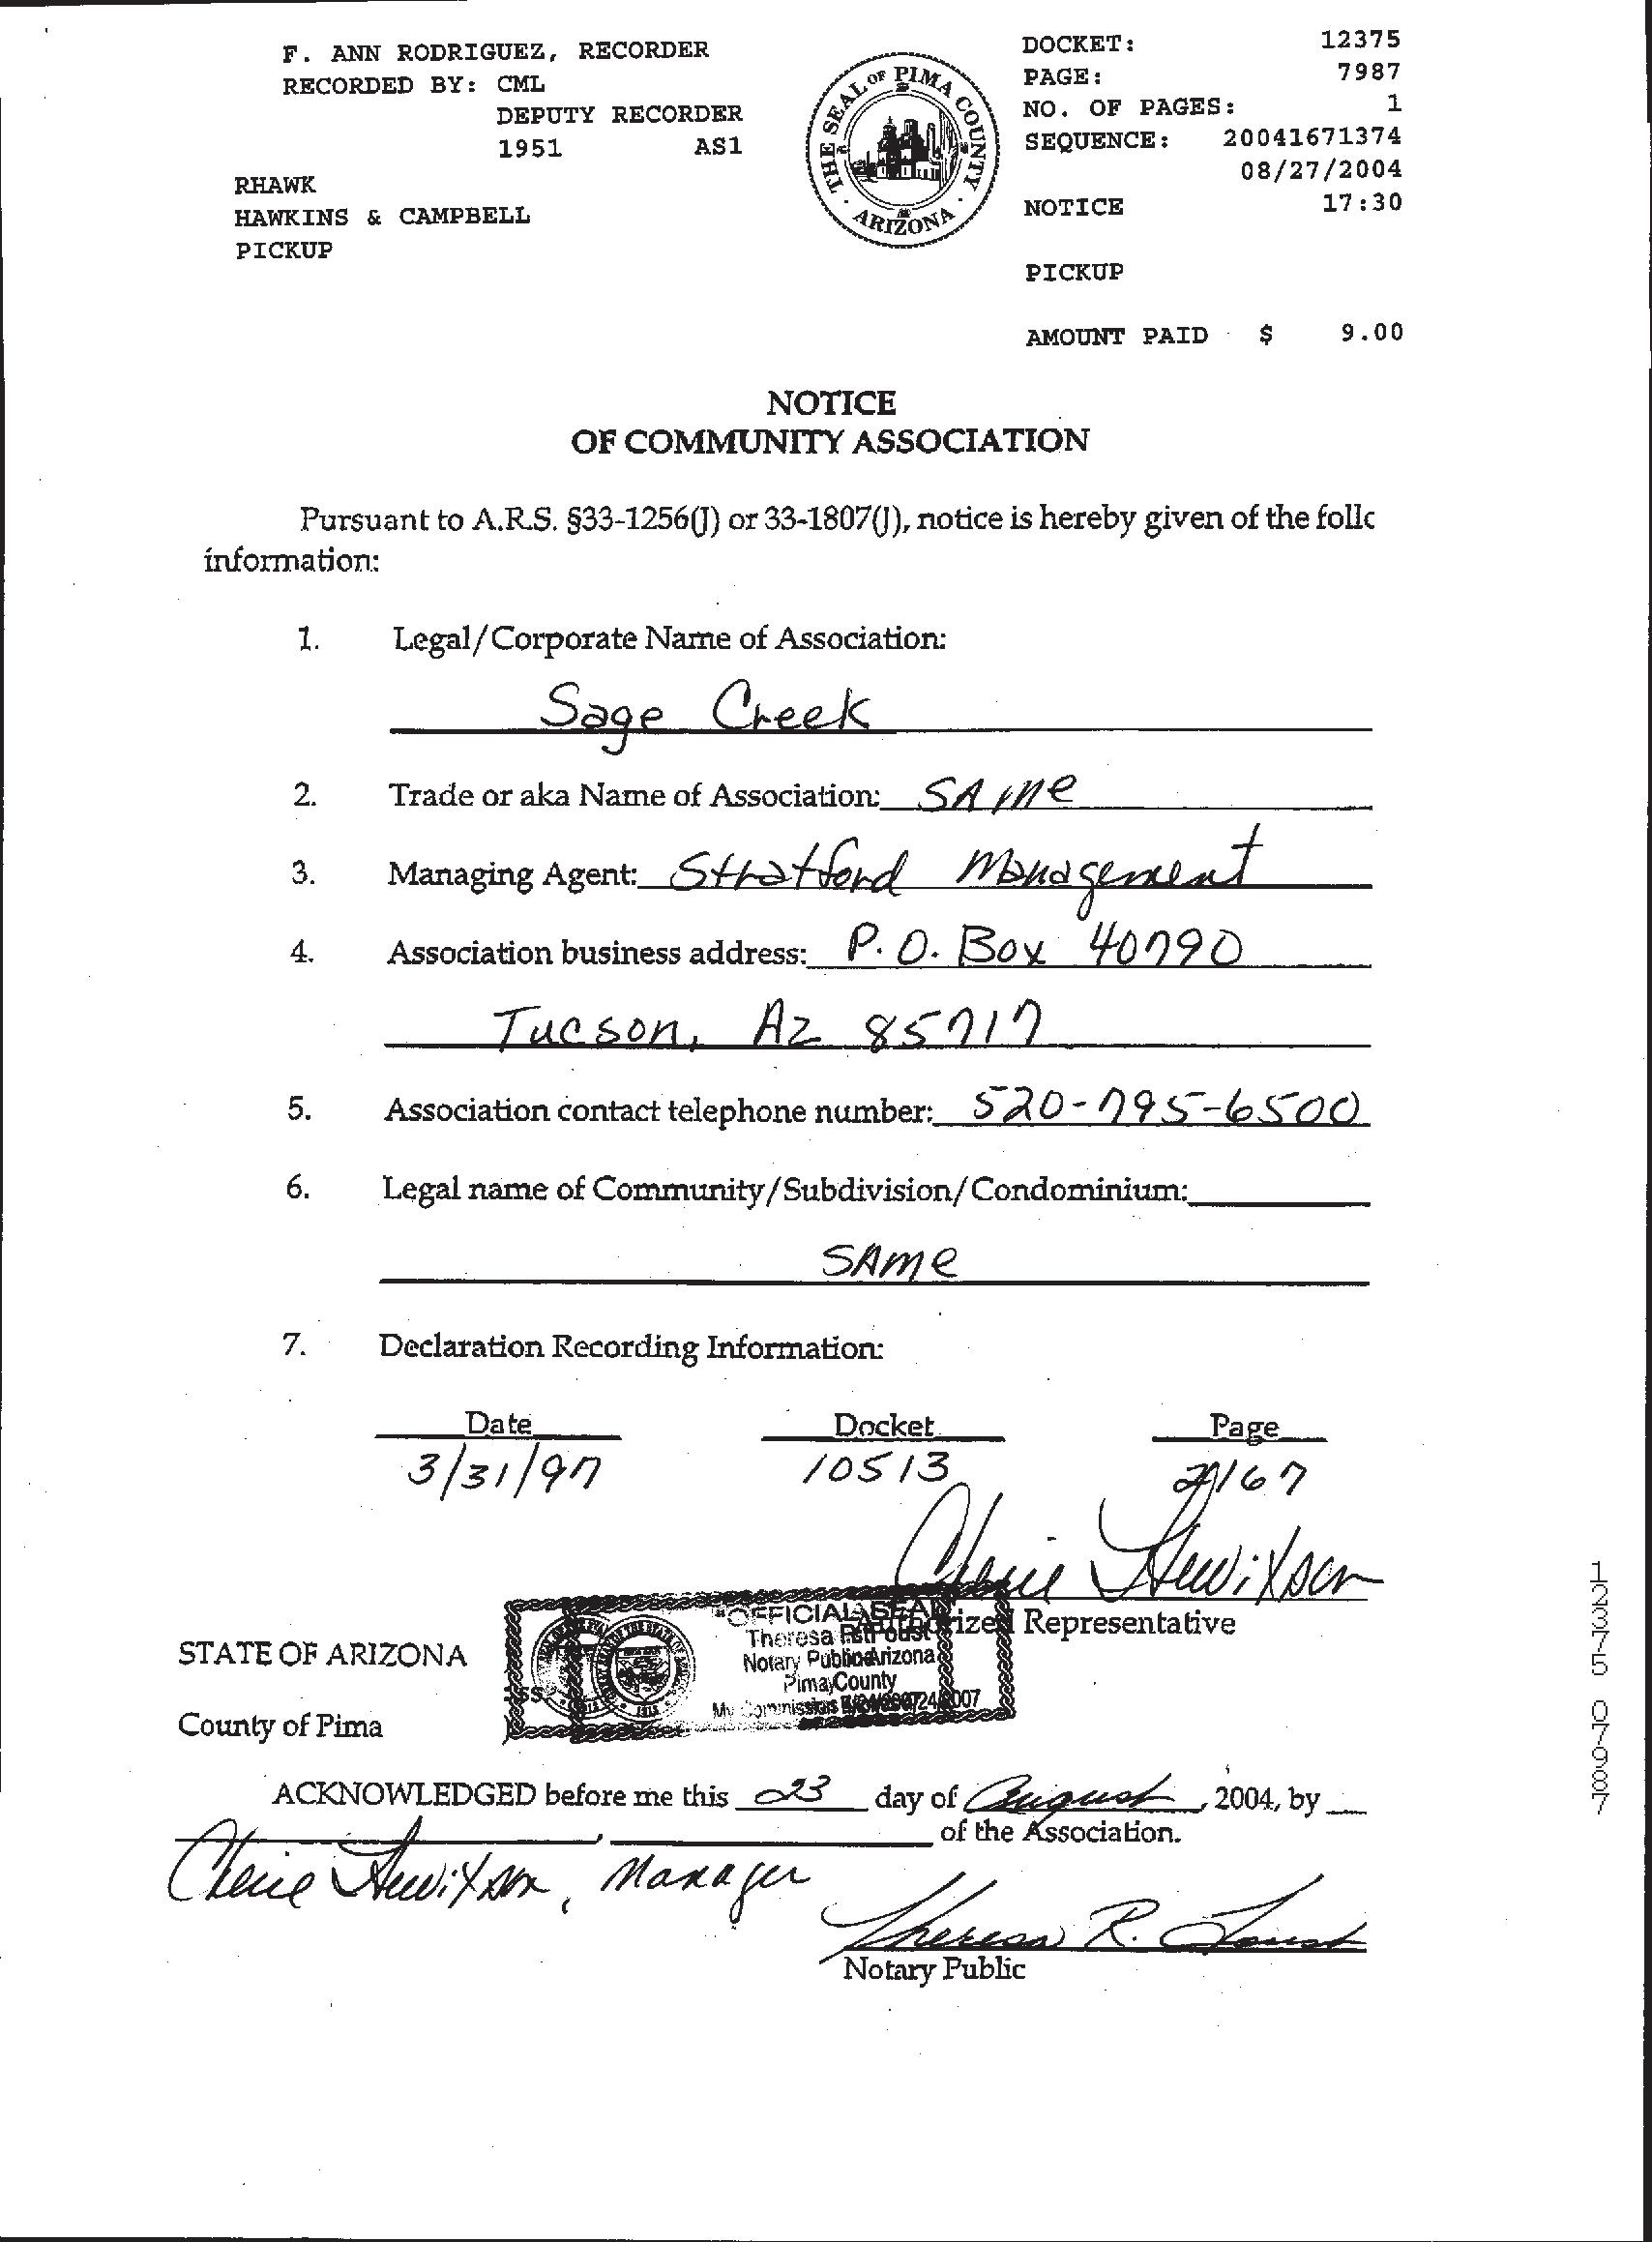 F. ANN RODRIGUEZ, RECORDER
RECORDED BY: CML
DEPUTY RECORDER
1951 AS1
RHAWK
HAWKINS & CAMPBELL
PICKUP
THE SEAL OF PIMA COUNTY
ARIZONA
DOCKET: 12375
PAGE: 7987
NO. OF PAGES: 1
SEQUENCE: 20041671374
08/27/2004
NOTICE 17:30
PICKUP
AMOUNT PAID $ 9.00
NOTICE
OF COMMUNITY ASSOCIATION
Pursuant to A.R.S. §33-1256(J) or 33-1807(J), notice is hereby given of the follc
information:
1. Legal/Corporate Name of Association:
Sage Creek
2. Trade or aka Name of Association: SAme
3. Managing Agent: Stratford Management
4. Association business address: P.O. Box 40790
Tucson, Az 85717
5. Association contact telephone number: 520-795-6500
6. Legal name of Community/Subdivision/Condominium:
SAme
7. Declaration Recording Information:
Date Docket Page
3/31/97 10513 2167
Cherie
Authorized Representative
"OFFICIAL SEAL"
Theresa
Notary Public Arizona
Pima County
My Commission
STATE OF ARIZONA
ss.
County of Pima
ACKNOWLEDGED before me this 23 day of August, 2004, by
, of the Association.
Cherie , Manager
Theresa R. Foust
Notary Public
12375 07987